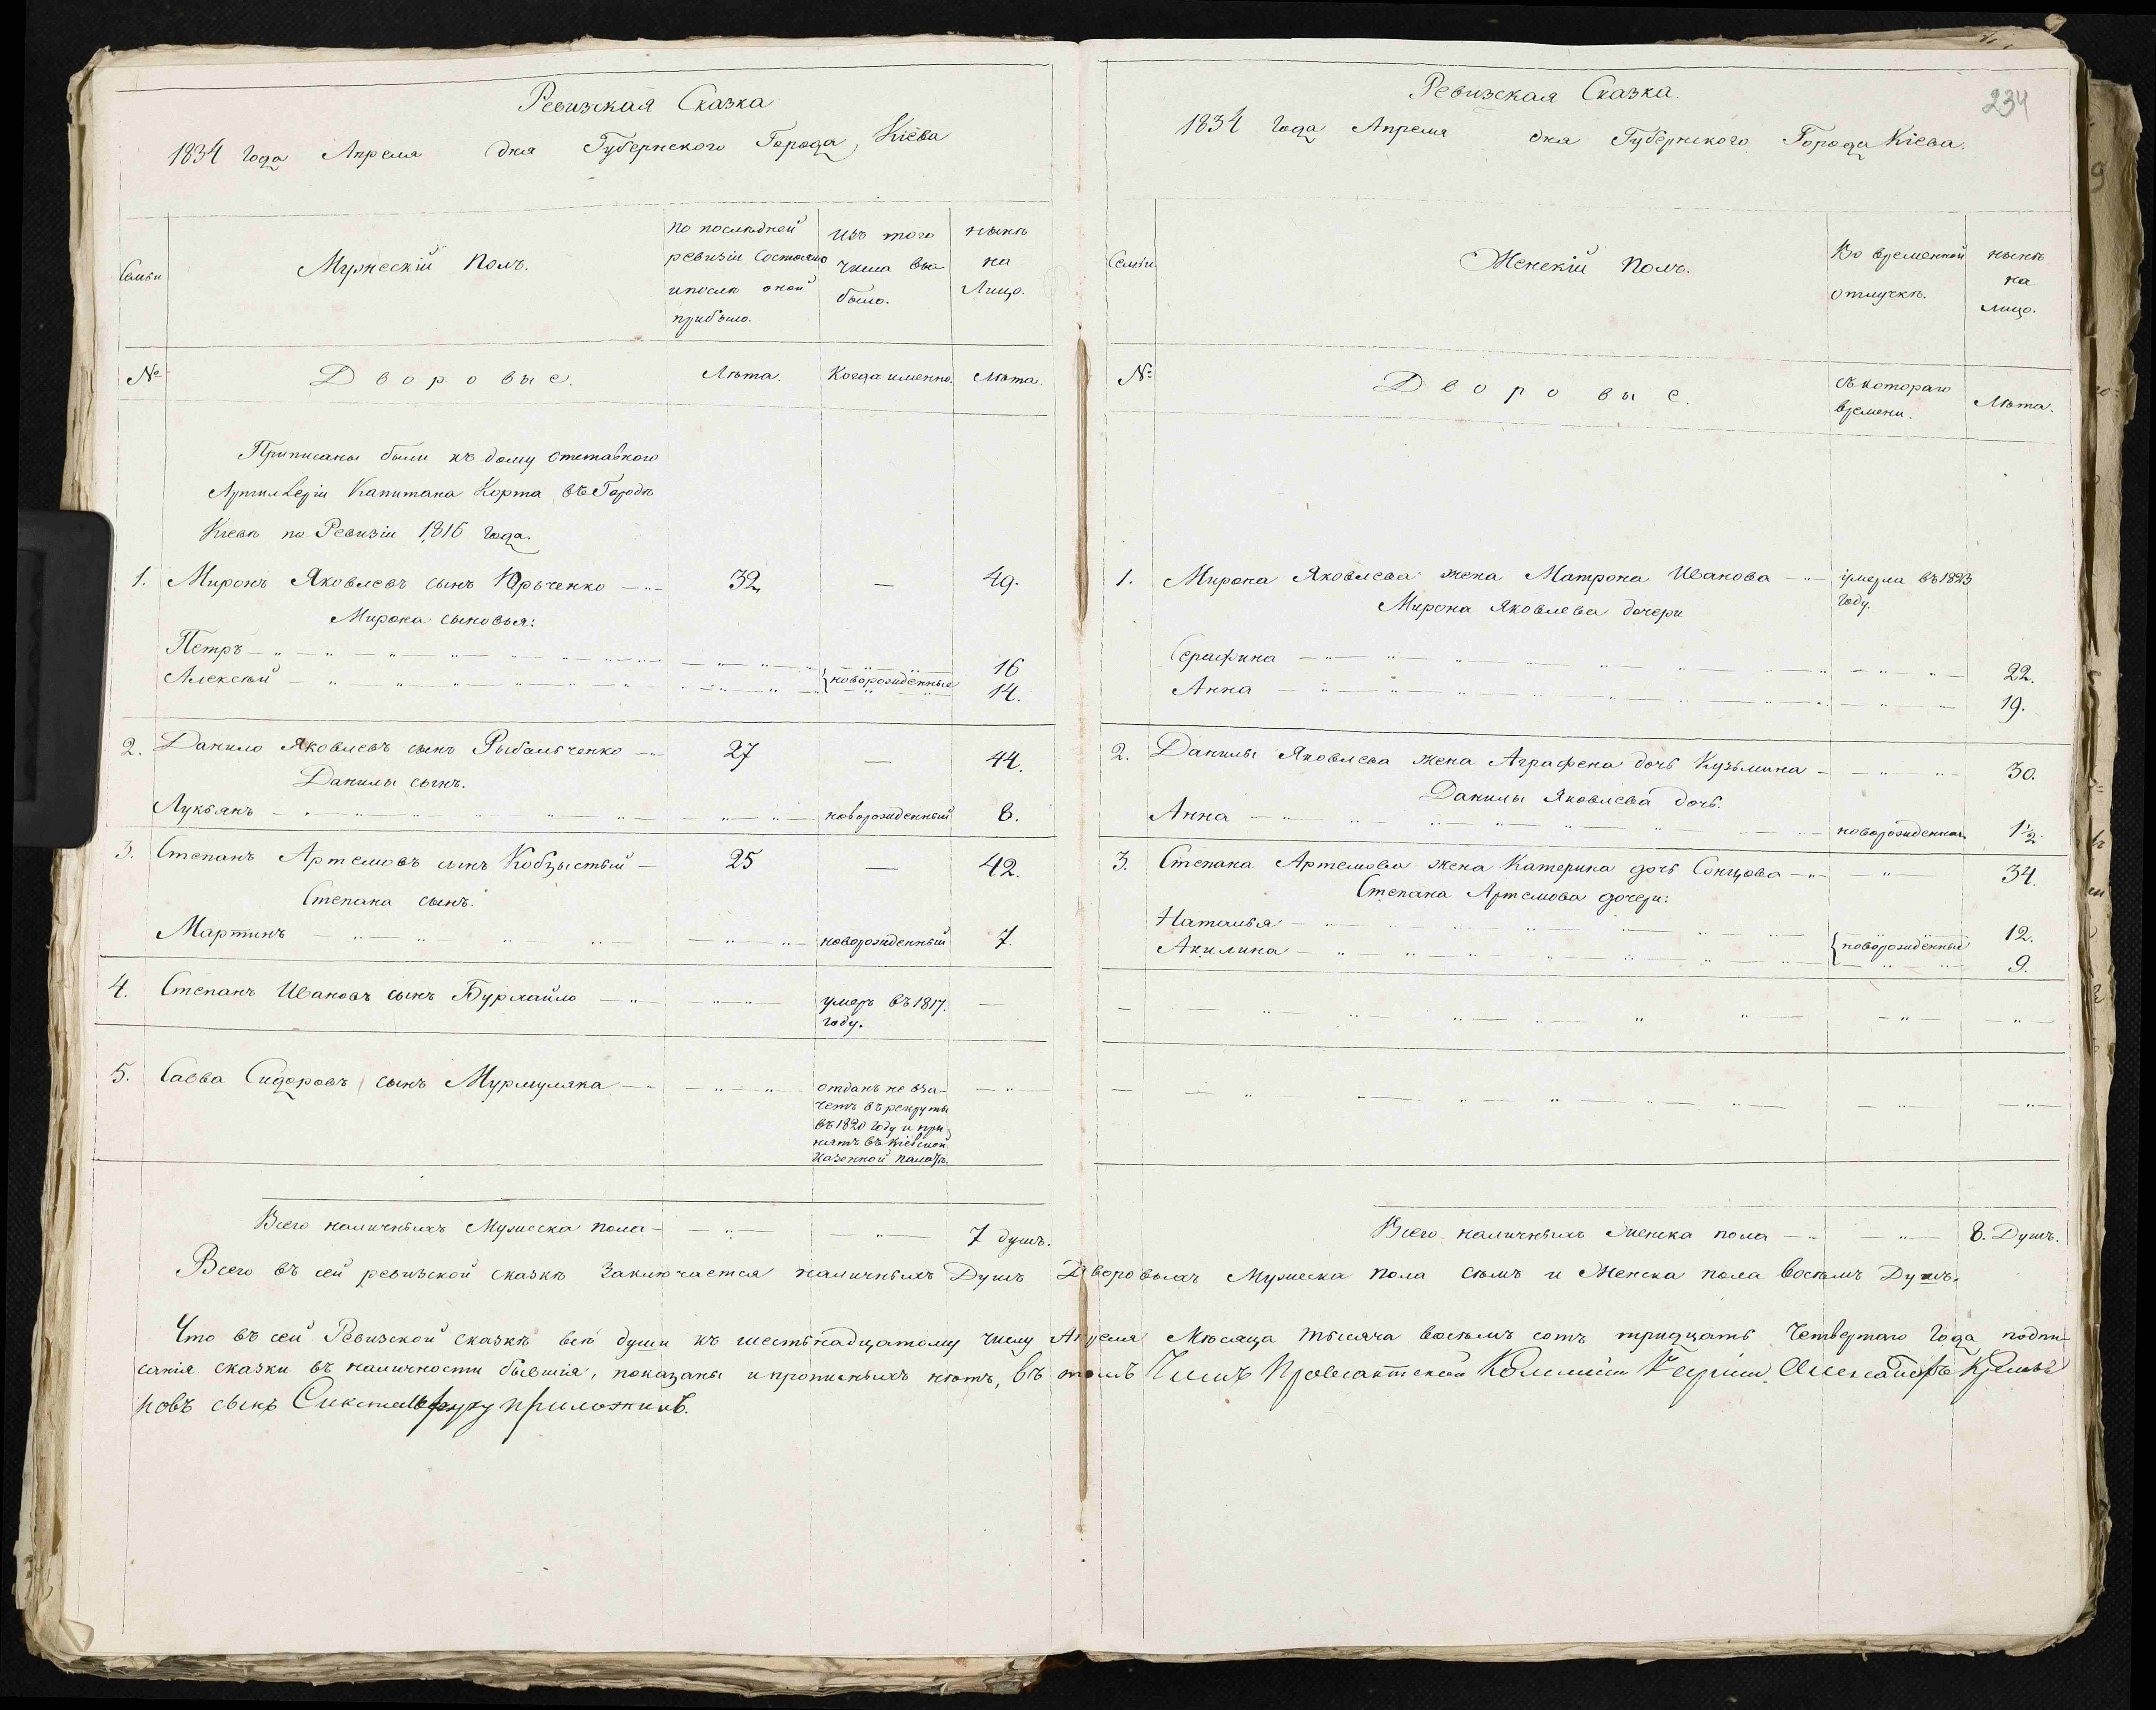 Ревизская Сказка
1834 Года Апреля дня Губернского Города Кіева
Семьи
Мужескій Полъ.
по последней ревизіи Состояло и после оной прибыло.
Изъ того числа выбыло.
ныне на Лицо.
№
Дворовые.
Лета.
Когда именно.
Лета.
Приписаны были къ дому отставного
Артиллеріи Капитана Корта въ Городе
Кіеве по Ревизіи 1816 Года.
1. Миронъ Яковлевъ сынъ Юрьченко 32 — 49.
Мирона сыновья:
Петръ 16
Алексей новорожденные 14.
2. Данило Яковлевъ сынъ Рыбальченко 27 — 44.
Данилы сынъ.
Лукьянъ новорожденный 8.
3. Степанъ Артемовъ сынъ Кобзыстый 25 — 42.
Степана сынъ.
Мартинъ новорожденный 7.
4. Степанъ Ивановъ сынъ Бурхайло умеръ въ 1817. —
году.
5. Савва Сидоровъ сынъ Мурмуляка отданъ не въ за-
четъ въ рекруты
въ 1820 году и при-
нятъ въ Кіевской
Казенной палате.
Всего наличныхъ Мужеска пола 7 душъ.
234
Ревизская Сказка.
1834 Года Апреля дня Губернского Города Кіева.
Семьи
Женскій Полъ.
Во временной отлучке.
ныне на лицо.
№
Дворовые.
Съ котораго времени.
Лета.
1. Мирона Яковлева жена Матрона Иванова умерла въ 1823
году.
Мирона Яковлева дочери
Серафина 22.
Анна 19.
2. Данилы Яковлева жена Аграфена дочь Кузьмина 30.
Данилы Яковлева дочь.
Анна новорожденная 1½
3. Степана Артемова жена Катерина дочь Сонцова 34.
Степана Артемова дочери:
Наталья 12.
Акилина новорожденные 9.
Всего наличныхъ женска пола 8. Душъ.
Всего въ сей ревизской сказке Заключается наличныхъ Душъ Дворовыхъ Мужеска пола семъ и Женска пола Восемъ Душъ.
Что въ сей Ревизской сказке все души къ шестьнадцатому числу Апреля Месяца тысяча восемъ сотъ тридцать Четвертаго Года подпи-
санія сказки въ наличности бывшія, показаны и прописныхъ нетъ, въ томъ Александръ
новъ сынъ руку приложилъ.